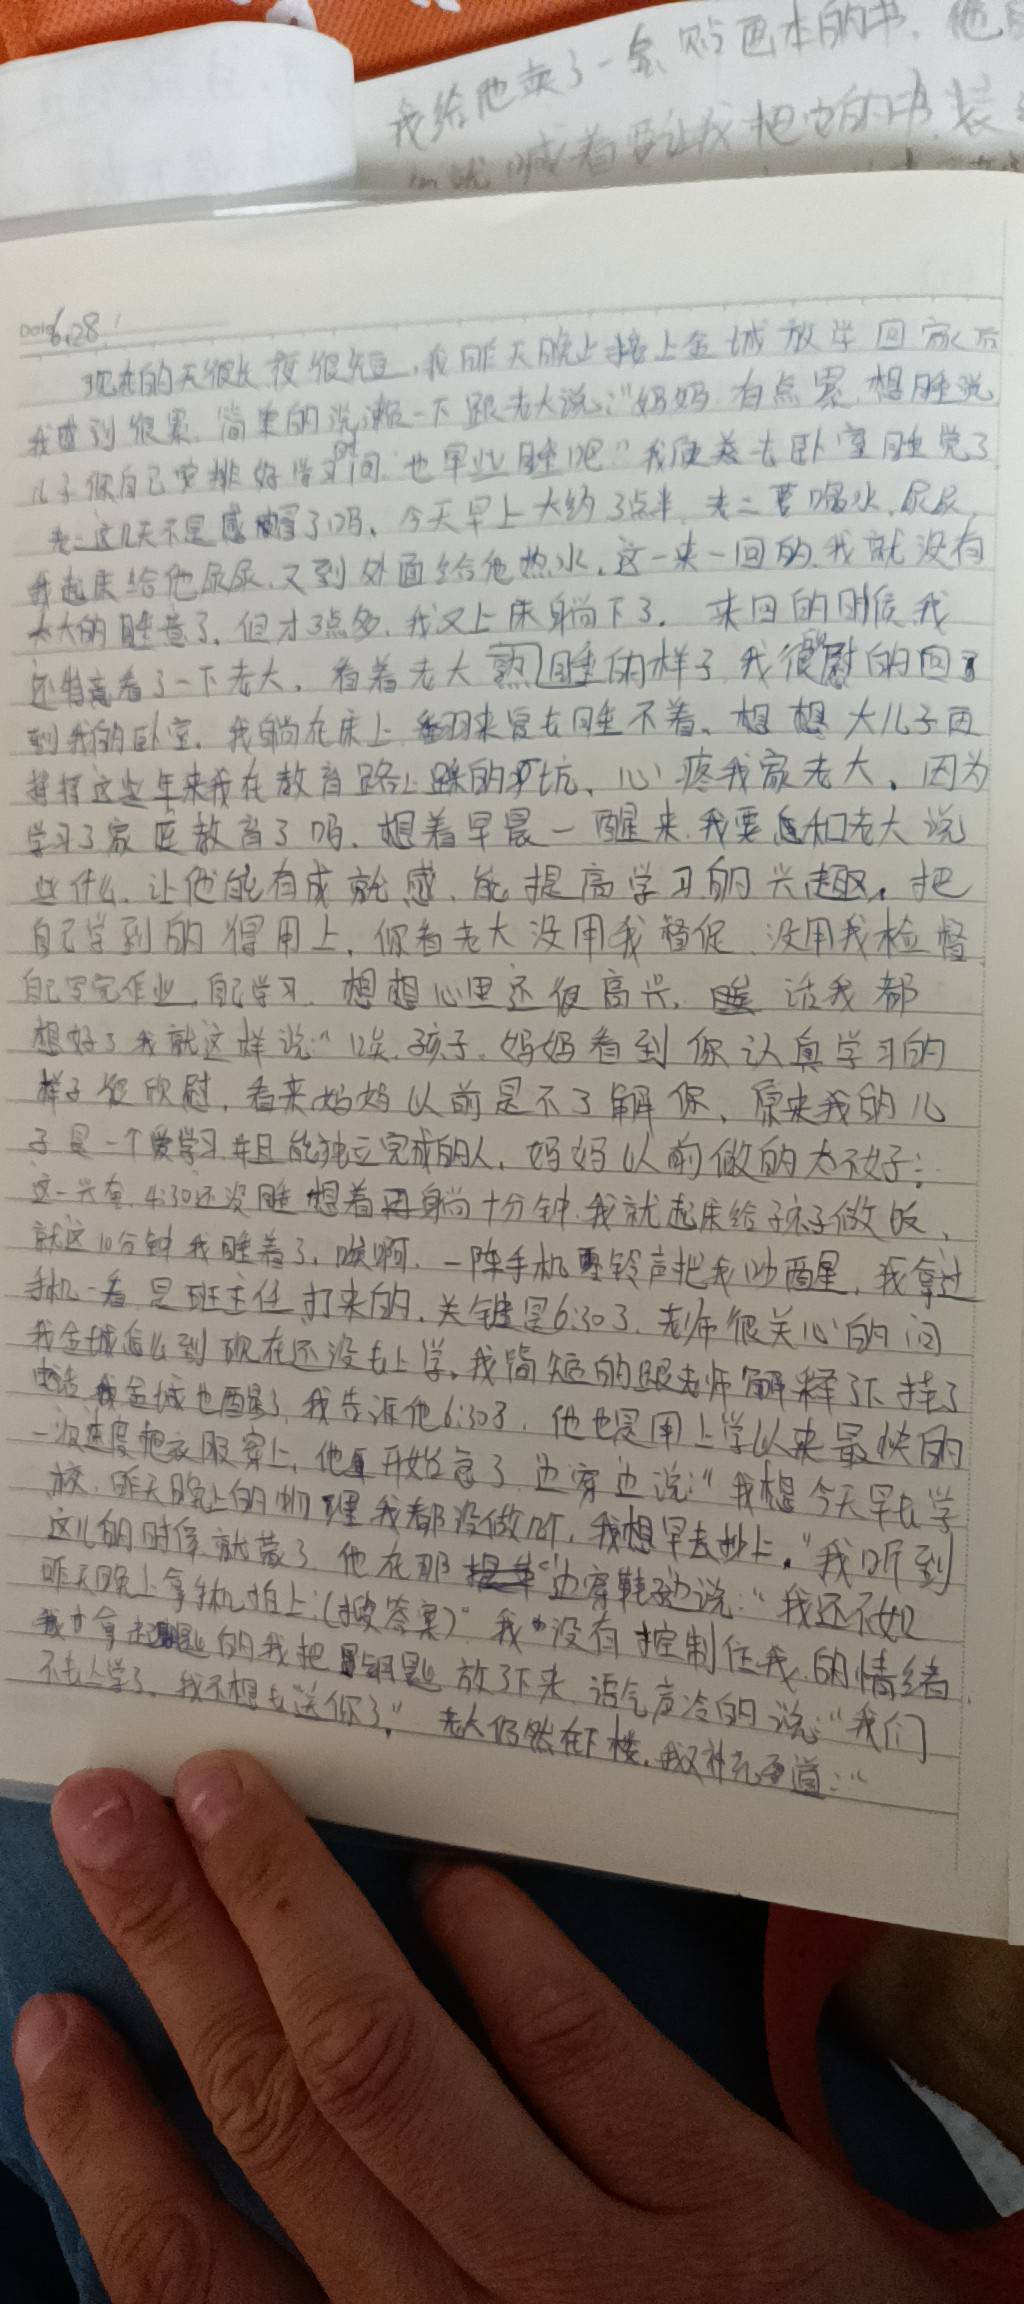 我给他卖了一盒贴画本的书,他
喊着要让我把它的书装
Date 6.28
现在的天很长夜很短,我昨天晚上接上金城放学回家后
我感到很累,简单的洗漱一下跟老大说:"妈妈有点累,想睡觉
儿子你自己安排好学习时间,也早些睡吧"我便卷去卧室睡觉了
老二这几天不是感冒了吗,今天早上大约3点半,老二要喝水,尿尿,
我起床给他尿尿,又到外面给他热水,这一来一回的,我就没有
太大的睡意了,但才3点多,我又上床躺下了。来回的时候我
还特意看了一下老大,看着老大熟睡的样子,我很慰的回了
到我的卧室。我躺在床上翻来复去睡不着、想想大儿子再
择择这些年来我在教育路上踩的坑、心疼我家老大,因为
学习了家庭教育了吗,想着早晨一醒来,我要怎和老大说
些什么,让他能有成就感,能提高学习的兴趣,把
自己学到的得用上,你看老大没用我督促,没用我检督
自己写完作业,自己学习,想想心里还很高兴,话我都
想好了我就这样说:"唉,孩子,妈妈看到你认真学习的
样子很欣慰,看来妈妈以前是不了解你,原来我的儿
子是一个爱学习并且能独立完成的人,妈妈以前做的太不好;
这一兴奋,4:30还没睡想着再躺十分钟,我就起床给孩子做饭,
就这10分钟我睡着了,唉啊,一阵手机铃声把我吵醒,我拿过
手机一看是班主任打来的,关键是6:30了,老师很关心的问
我金城怎么到现在还没去上学,我简短的跟老师解释了下,挂了
电话我金城也醒了,我告诉他6:30了,他也是用上学以来最快的
一次速度把衣服穿上,他开始急了,边穿边说:"我想今天早去学
校,昨天晚上的物理我都没做几个,我想早去抄上。"我听到
这儿的时候就蒙了,他在那边穿鞋边说:"我还不如
昨天晚上拿手机拍上:(搜答案)"我没有控制住我的情绪,
我才拿起的我把钥匙放了下来,语气声冷的说:"我们
不去上学了,我不想去送你了。"老大仍然在下楼,我又补充道:"